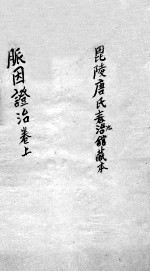 毘陵唐氏養治館藏本
脈因證治卷上